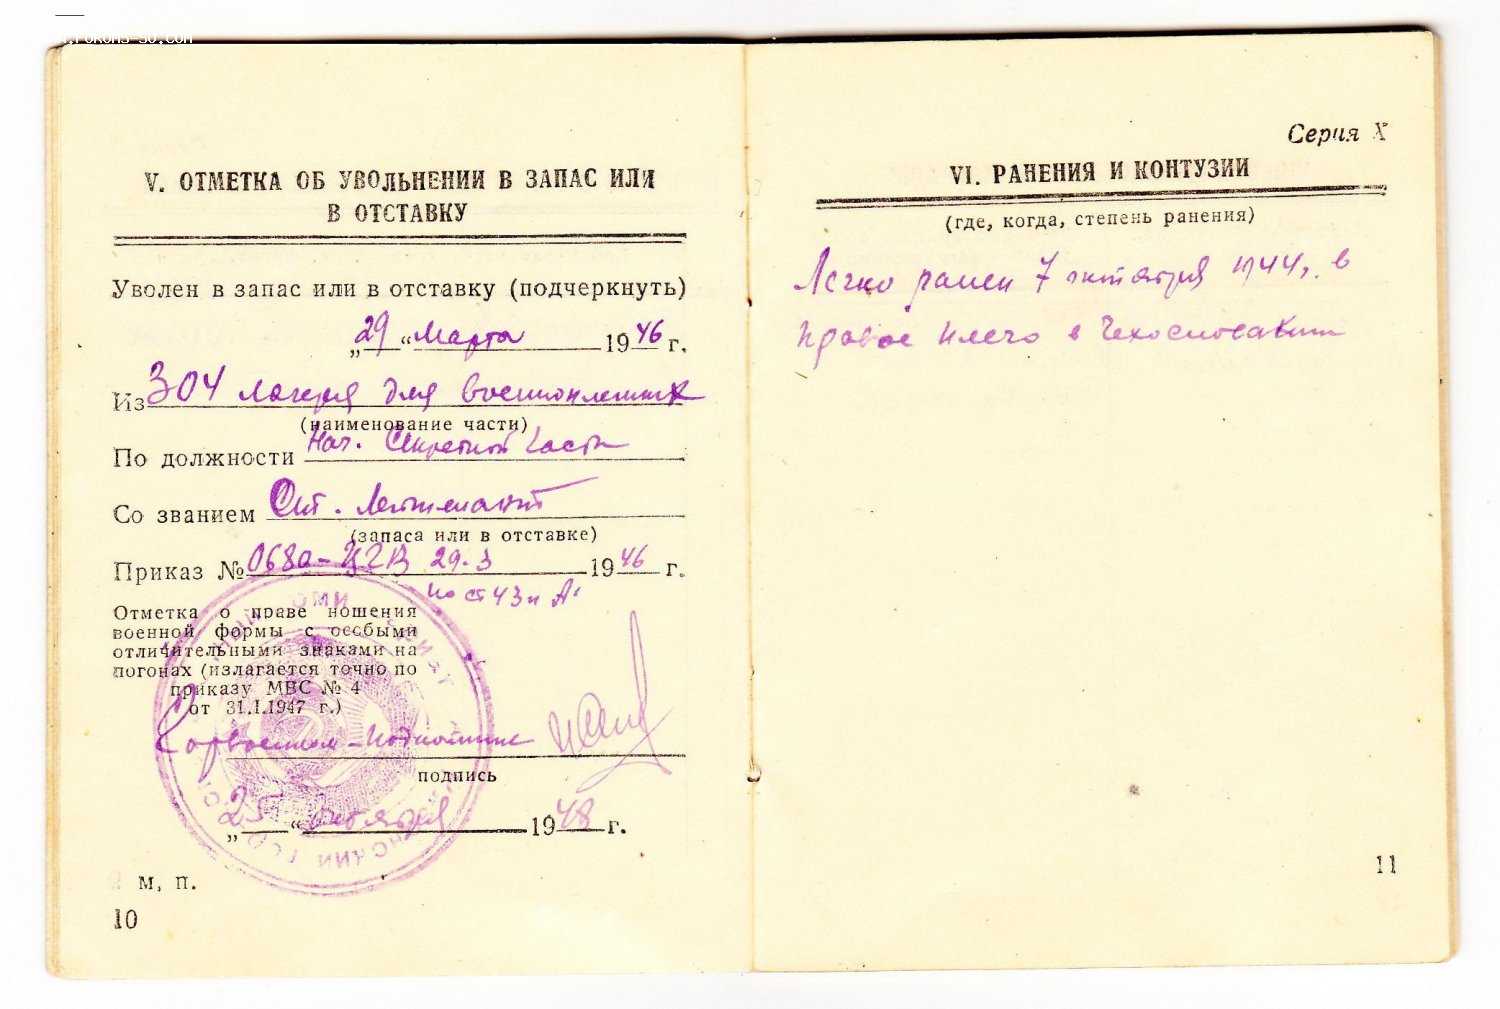 V. ОТМЕТКА ОБ УВОЛЬНЕНИИ В ЗАПАС ИЛИ
В ОТСТАВКУ
Уволен в запас или в отставку (подчеркнуть)
„29“ Марта 1946 г.
Из 304 лагеря для военнопленных
(наименование части)
По должности Нач. Секретной части
Со званием Ст. Лейтенант
(запаса или в отставке)
Приказ № 068а-ЦГВ 29.3 1946 г.
по ст 43 п А
Отметка о праве ношения
военной формы с особыми
отличительными знаками на
погонах (излагается точно по
приказу МВС № 4
от 31.I.1947 г.)
подпись
„25“ Октября 1948 г.
М, П.
10
Серия X
VI. РАНЕНИЯ И КОНТУЗИИ
(где, когда, степень ранения)
Легко ранен 7 октября 1944г. в
правое плечо в Чехословакии
11